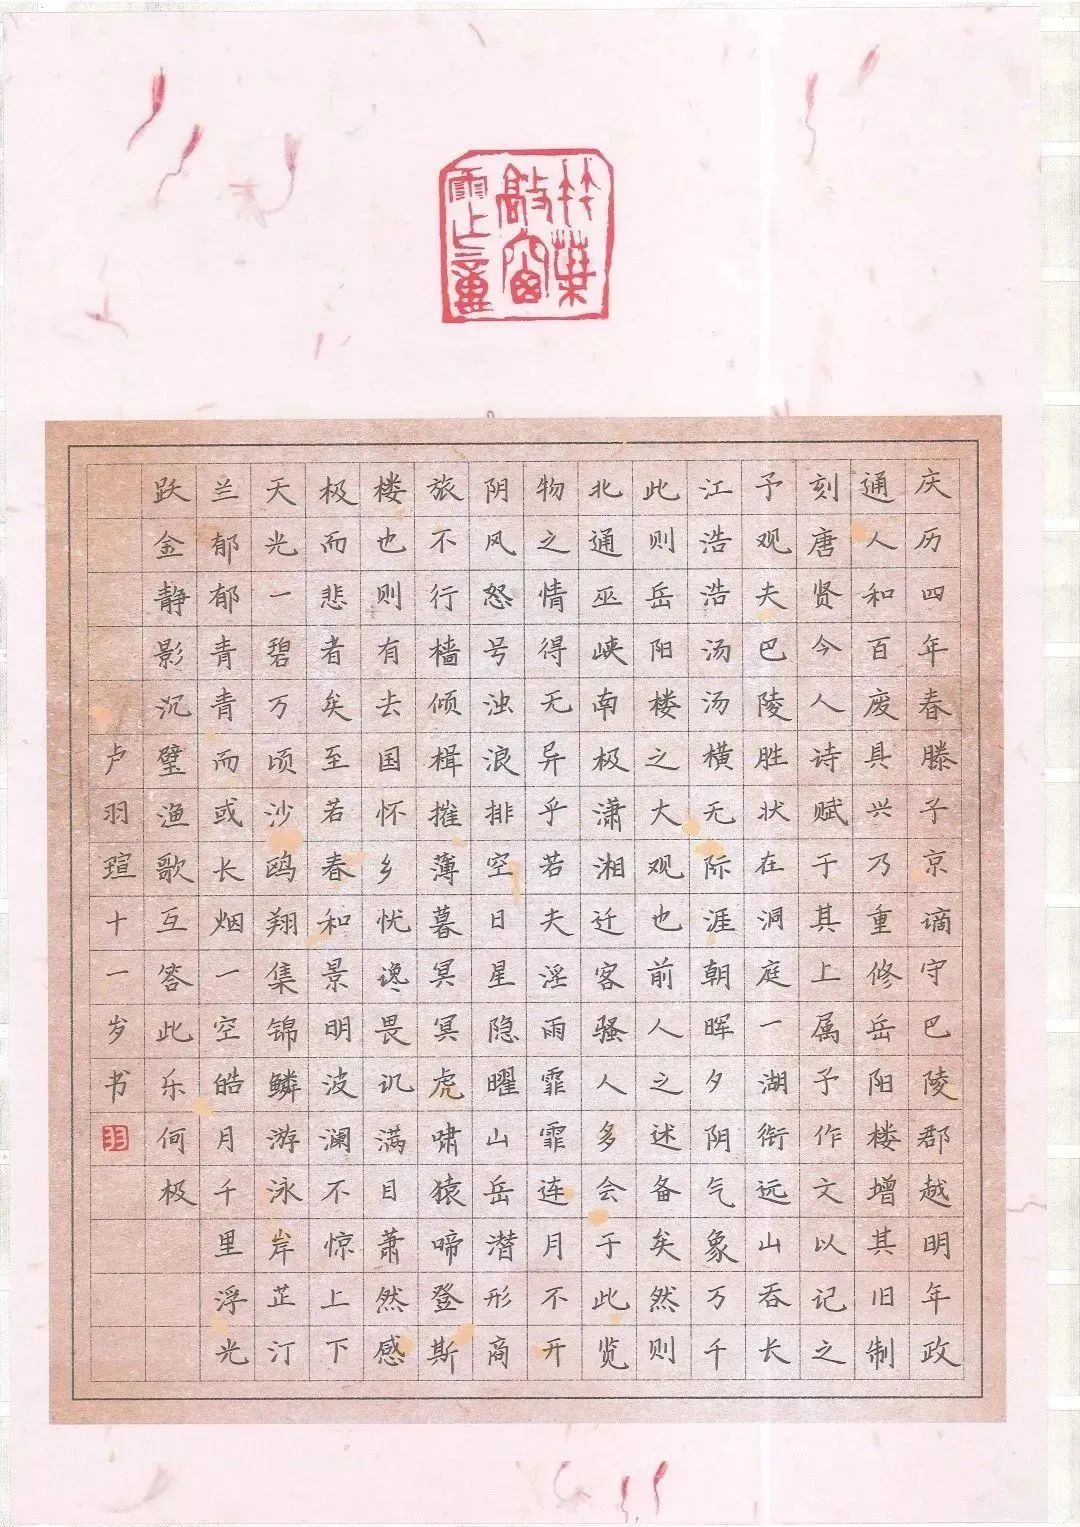 竹葉
敲窗
庆历四年春滕子京谪守巴陵郡越明年政
通人和百废具兴乃重修岳阳楼增其旧制
刻唐贤今人诗赋于其上属予作文以记之
予观夫巴陵胜状在洞庭一湖衔远山吞长
江浩浩汤汤横无际涯朝晖夕阴气象万千
此则岳阳楼之大观也前人之述备矣然则
北通巫峡南极潇湘迁客骚人多会于此览
物之情得无异乎若夫淫雨霏霏连月不开
阴风怒号浊浪排空日星隐曜山岳潜形商
旅不行樯倾楫摧薄暮冥冥虎啸猿啼登斯
楼也则有去国怀乡忧谗畏讥满目萧然感
极而悲者矣至若春和景明波澜不惊上下
天光一碧万顷沙鸥翔集锦鳞游泳岸芷汀
兰郁郁青青而或长烟一空皓月千里浮光
跃金静影沉璧渔歌互答此乐何极
卢羽瑄十一岁书
羽